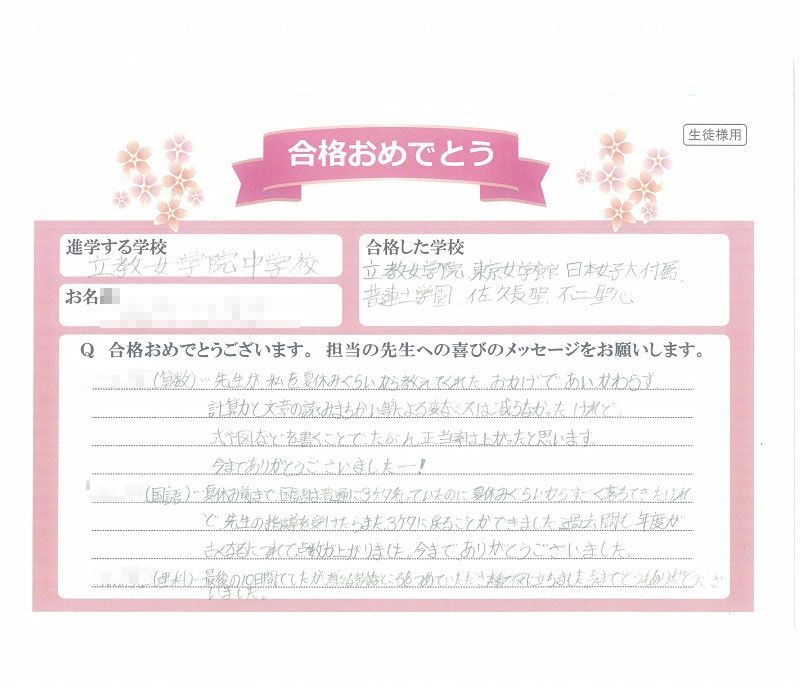 生徒様用
合格おめでとう
進学する学校
立教女学院中学校
合格した学校
立教女学院、東京女学館、日本女子大付属、
普連土学園、佐久長聖、不二聖心
お名
Q 合格おめでとうございます。担当の先生への喜びのメッセージをお願いします。
(算数)…先生が私を夏休みぐらいから教えてくれたおかげであいかわらず
計算力と文章の読みまちがい等による変なミスは減らなかったけれど、
式や図などを書くことでたぶん正当率は上がったと思います。
今までありがとうございましたー!
(国語)…夏休み前まで国語は普通に3ケタ行っていたのに夏休みぐらいからすごく落ちてきたけれ
ど、先生の指導を受けたらまた3ケタに戻ることができました。過去問も年度が
古くなるにつれて点数が上がりました。今まで、ありがとうございました。
(理科)…最後の10日間でしたが
役に立ちました。今までどうもありがとうござ
いました。